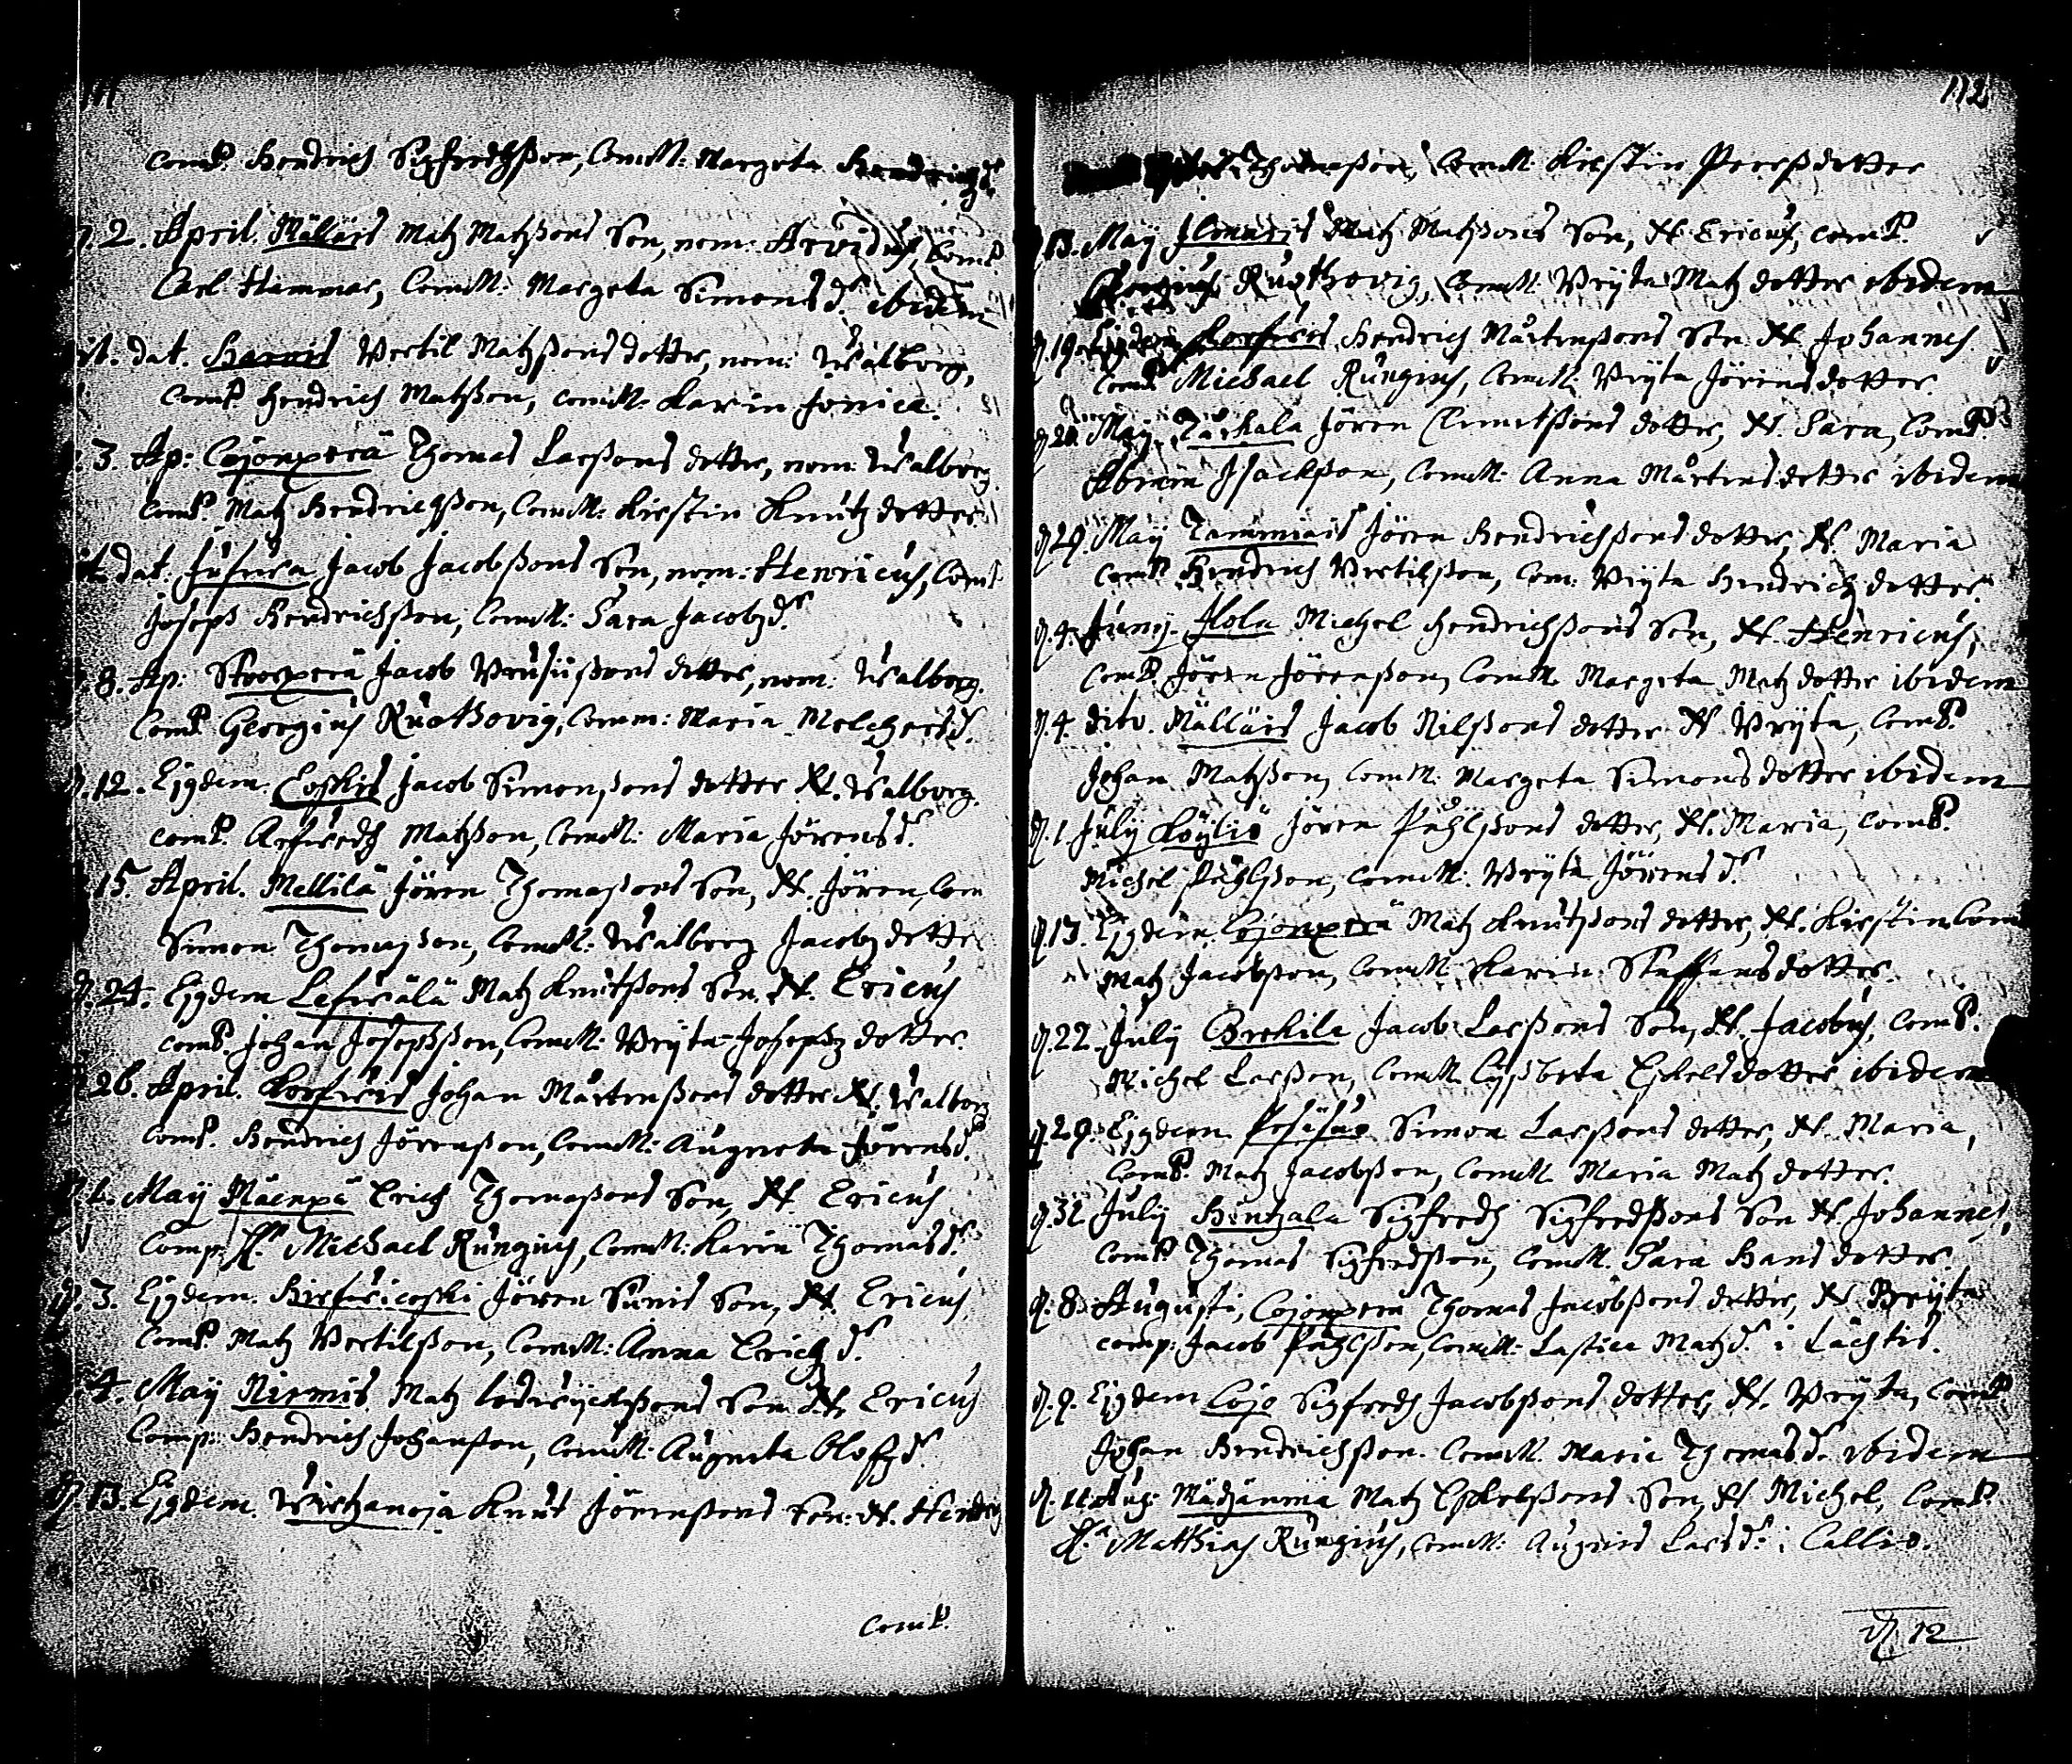 111
Comp. Hendrich Sigfredhßon, ComM: Margeta
d. 2. April. Mälläis Matz Matzßons Son, nom: Arvidus, Comp.
Carl Hammar, ComM: Margeta Simons dr. ibidem
it. dat. Hannis Bertil Matzßons dotter, nom: Walborg,
Comp Hendrich Matzßon, comM: Karin
3. Ap: Cojonperä Thomas Larßons dotter, nom: Walborg
Comp. Matz Hendrichßon, ComM: Kirstin Knutz dotter
it. dat. Jacob Jacobßons Son, nom: Henricus, Comp
Joseph Hendrichßon, ComM: Sara Jacobz dr.
8. Ap: Jacob dotter, nom: Walborg.
Comp. Georgius Ruothovig, Comm: Maria Melchers dr.
d. 12. Ejgdem. Jacob Simonßons dotter N. Walborg.
comp. Matzßon, ComM: Maria Jörens dr.
15. April. Mellilä Jören Thomaßons Son, N. Jören, Com
Simon Thomaßon, ComM: Walborg Jacobz dotter
d. 24. Ejgdem Matz Knutßons Son N. Ericus
comp. Johan Josephßon, ComM: Bryta Josephz dotter.
26. April. Johan Mårtenßons dotter N. Walborg
Comp. Hendrich Jörenßon, ComM: Augneta Jörens dr
d. 1. Maÿ Mäenpä Erich Thomaßons Son, N. Ericus
Comp: Hr Michael Rungius, ComM: Karin Thomas dr.
d. 3. Ejgdem. Jören Son, N. Ericus
Comp. Matz Bertilßon, ComM: Anna Erichz dr.
4. Maÿ Niemis Matz Son. N. Ericus
Comp: Hendrich Johanßon, ComM: Augneta Olofz dr.
d. 13. Ejgdem. Wirtzanoja Knut Jörenßons Son. N. Hendrich
Comp.
112
Thomaßon, ComM. Kirstin Perßdotter
d. 13. Maÿ Matz Matzßons Son, N. Ericus, comp.
Georgius Ruothovig, ComM: Bryta Matz dotter ibidem
d. 19. Hendrich Mårtenßons Son N. Johannes
Comp. Michael Rungius, ComM: Bryta Jörens dotter
d. 20. Maÿ. Jören Clemetßons dotter, N. Sara, Comp.
Abram Jsackßon, ComM: Anna Mårtens dotter ibidem
d. 29. Maÿ Tammiais Jören Hendrichßons dotter, N. Maria
Comp. Hendrich Bertilßon, Com: Bryta Hendrich dotter.
d. 4. Junij. Jlola Michel Hendrichßons Son, N. Henricus,
Comp. Jören Jörenßon, ComM. Margeta Matz dotter ibidem
d. 4. dito. Mälläis Jacob Nilßons dotter N. Bryta, Comp.
Johan Matzßon, ComM: Margeta Simons dotter ibidem
d. 1. Julÿ Köyliö Jören Påhlßons dotter, N. Maria, comp.
Michel Påhlßon, ComM: Bryta Jörens dr
d. 13. Ejgdem. Cojonperä Matz Knutßons dotter, N. Kirstin Com
Matz Jacobßon, ComM: Karin Staffans dotter.
d. 22. Julÿ Jacob Larßons Son, N. Jacobus, Comp.
Michel Larßon, ComM. Lyßbeta Eskels dotter ibidem
d. 29. Ejgdem. Simon Larßons dotter, N. Maria,
Comp. Matz Jacobßon, ComM. Maria Matz dotter.
d. 31 Julÿ Hintzala Sigfredh Sigfredßons Son N Johannes,
Comp. Thomas Sigfredßon, ComM. Sara Hans dotter
d. 8. Augusti, Cojonperä Thomas Jacobßons dotter, N Bryta
comp: Jacob Påhlßon, ComM: Matz dr. i Lächtis.
d. 9. Ejgdem Cojo Sigfredh Jacobßons dotter, N. Bryta, Comp
Johan Hendrichßon. ComM. Maria Thomas dr. ibidem
d. 11. Aug: Matz Eskelßons Son, N. Michel, Comp.
Hr Matthias Rungius, ComM: Lars dr. i Callio.
d. 12